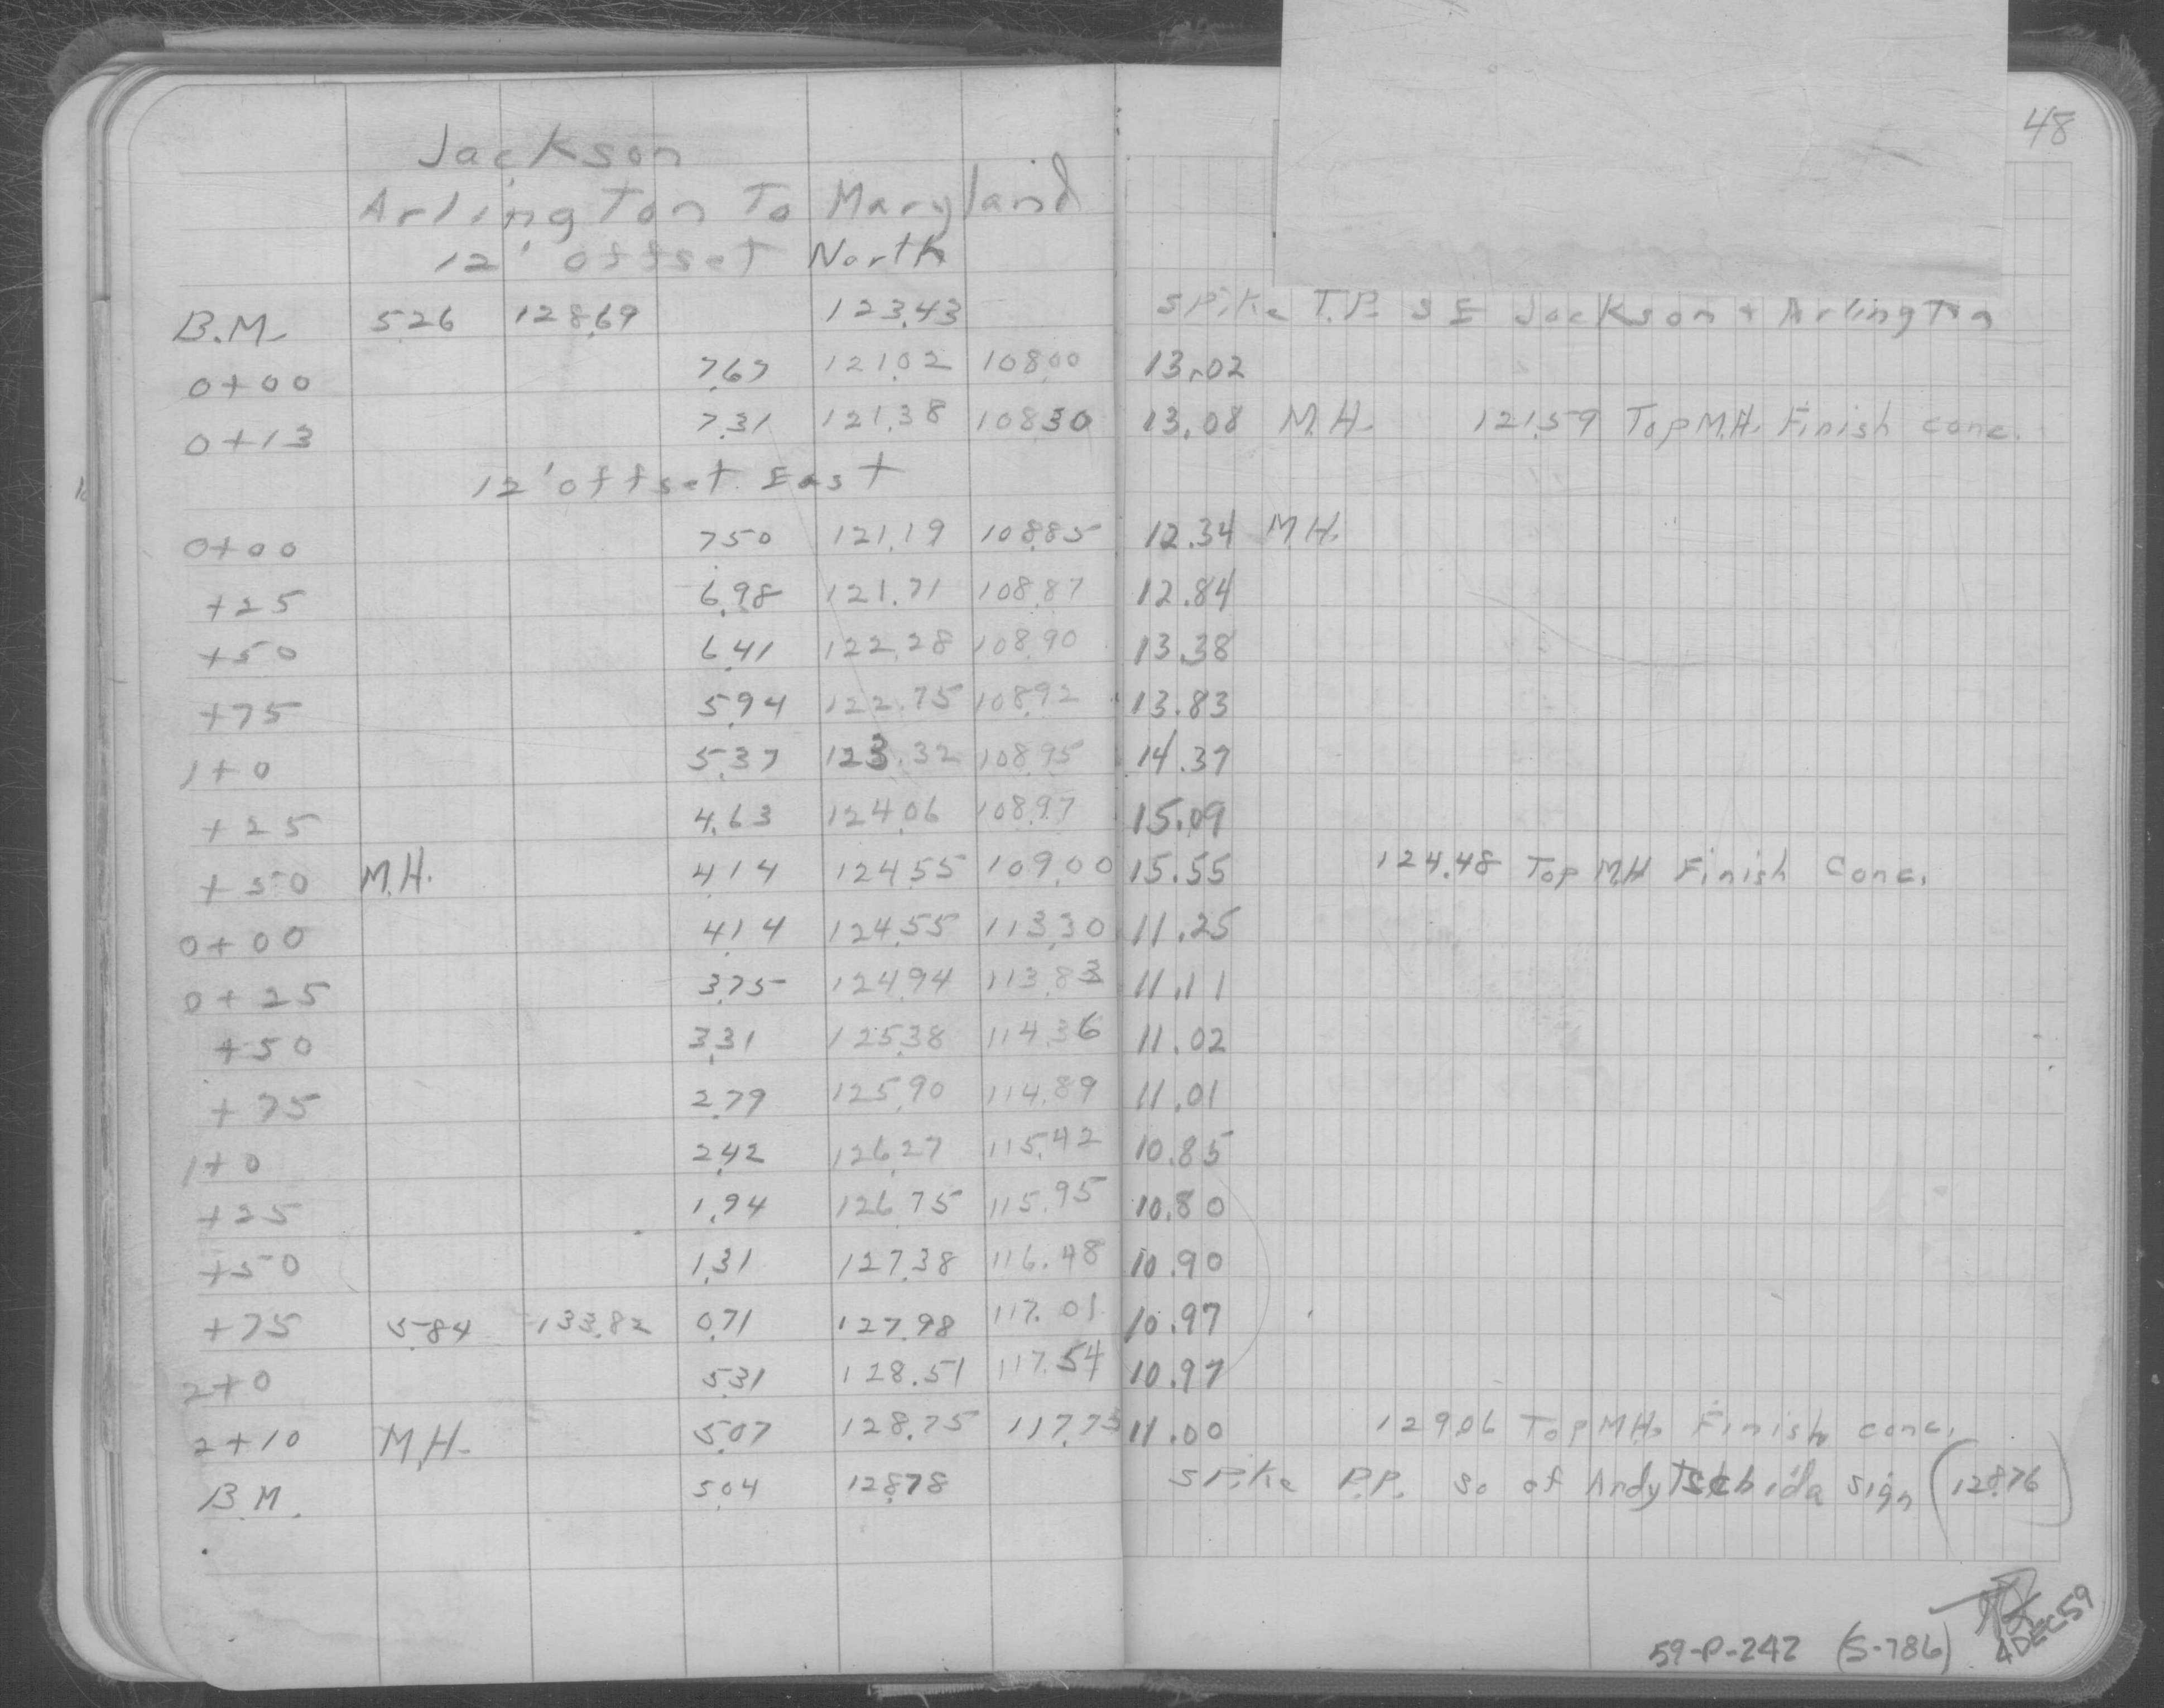 48
Jackson
Arlington To Maryland
12' offset North
B.M. 5.26 128.69 123.43 Spike T.P. S E Jackson + Arlington
0+00 7.67 121.02 108.00 13.02
0+13 7.31 121.38 108.30 13.08 M.H. 121.59 Top M.H. Finish conc.
12' offset East
0+00 7.50 121.19 108.85 12.34 M.H.
+25 6.98 121.71 108.87 12.84
+50 6.41 122.28 108.90 13.38
+75 5.94 122.75 108.92 13.83
1+0 5.37 123.32 108.95 14.37
+25 4.63 124.06 108.97 15.09
+50 M.H. 4.14 124.55 109.00 15.55 124.48 Top MH Finish Conc.
0+00 4.14 124.55 113.30 11.25
0+25 3.75 124.94 113.83 11.11
+50 3.31 125.38 114.36 11.02
+75 2.79 125.90 114.89 11.01
1+0 2.42 126.27 115.42 10.85
+25 1.94 126.75 115.95 10.80
+50 1.31 127.38 116.48 10.90
+75 5.84 133.82 0.71 127.98 117.01 10.97
2+0 5.31 128.51 117.54 10.97
2+10 M.H. 5.07 128.75 117.75 11.00 129.06 Top M.H. Finish conc.
B.M. 5.04 128.78 Spike P.P. So of Andy Tschida sign (128.76)
59-P-242 (S-786) 4DEC59